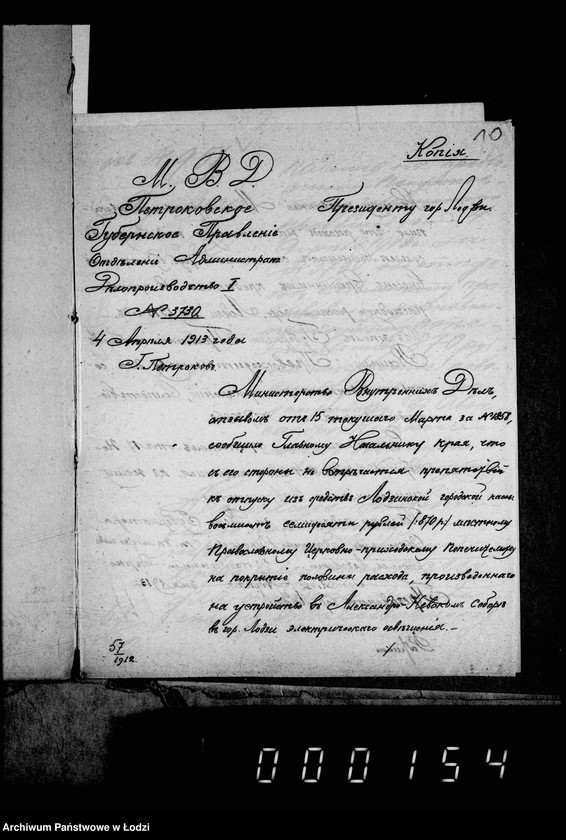 10
Копія.
М. В. Д.
Петроковское
Губернское Правленіе
Отдѣленіе Административ
Дѣлопроизводство I
№ 3730
4 Апрѣля 1913 года
Г. Петроковъ
Президенту гор. Лодзи.
Министерство Внутреннихъ Дѣлъ,
отзывомъ отъ 15 текущаго Марта за №
сообщило Главному Начальнику края, что
съ его стороны не встрѣчается препятствій
къ отпуску изъ средствъ Лодзинской городской кассы
восьмисотъ семидесяти рублей /:870 р:/ мѣстному
Православному Церковно-приходскому Попечительству
на покрытіе половины расхода, произведеннаго
на устройство въ Александро-Невскомъ Соборѣ
въ гор. Лодзи электрическаго освѣщенія. –
57
1912
000154
Archiwum Państwowe w Łodzi